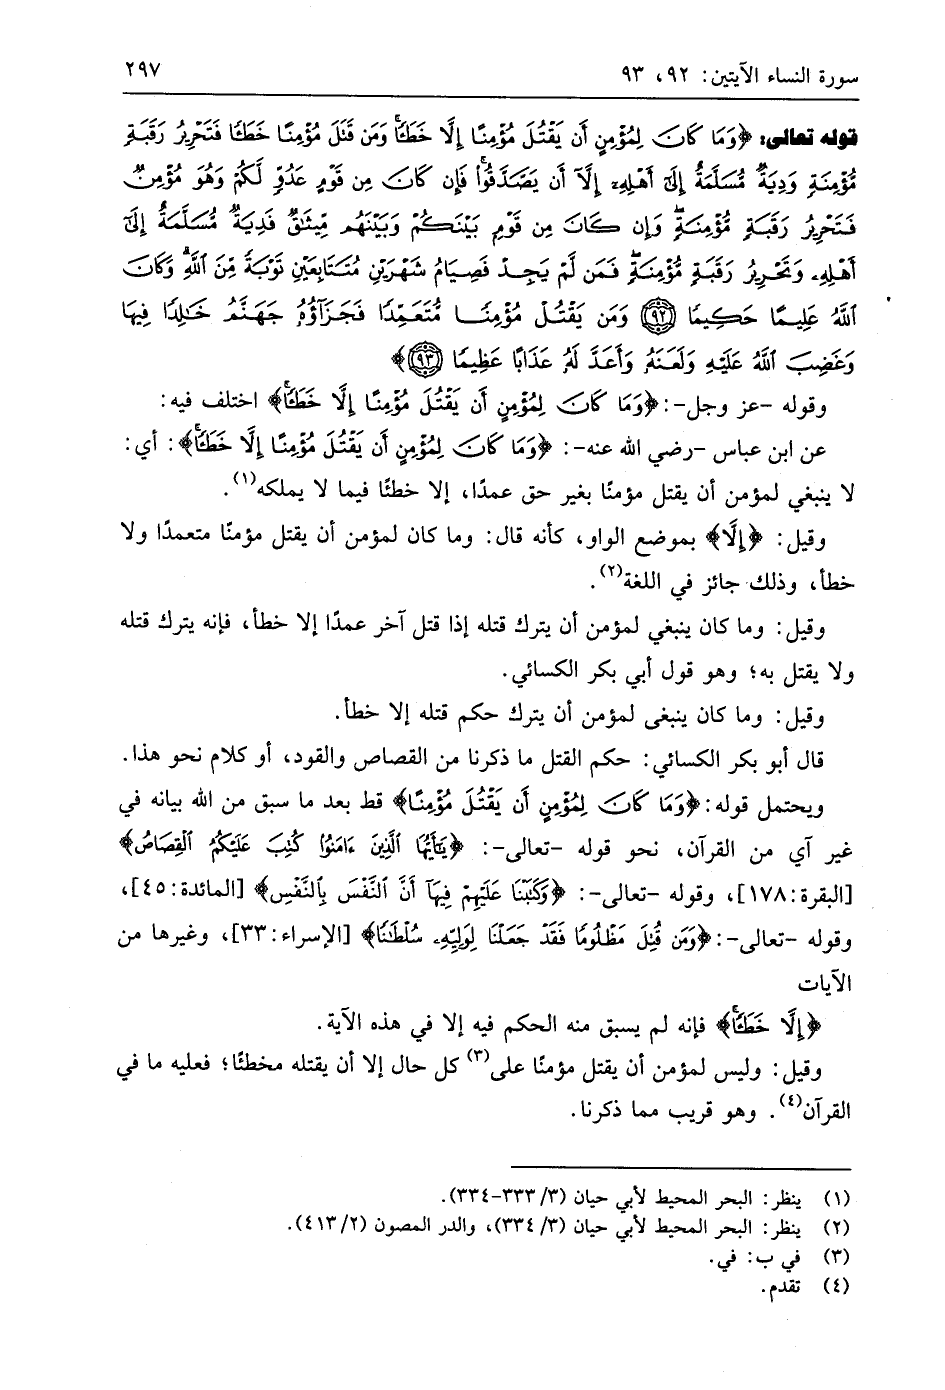 سورة النساء الآيتين: ٩٢، ٩٣
٢٩٧
قوله تعالى: ﴿وَمَا كَانَ لِمُؤْمِنٍ أَن يَقْتُلَ مُؤْمِنًا إِلَّا خَطَـًٔا وَمَن قَتَلَ مُؤْمِنًا خَطَـًٔا فَتَحْرِيرُ رَقَبَةٍ
مُّؤْمِنَةٍ وَدِيَةٌ مُّسَلَّمَةٌ إِلَىٰٓ أَهْلِهِۦٓ إِلَّآ أَن يَصَّدَّقُوا۟ فَإِن كَانَ مِن قَوْمٍ عَدُوٍّ لَّكُمْ وَهُوَ مُؤْمِنٌ
فَتَحْرِيرُ رَقَبَةٍ مُّؤْمِنَةٍ وَإِن كَانَ مِن قَوْمٍۭ بَيْنَكُمْ وَبَيْنَهُم مِّيثَٰقٌ فَدِيَةٌ مُّسَلَّمَةٌ إِلَىٰٓ
أَهْلِهِۦ وَتَحْرِيرُ رَقَبَةٍ مُّؤْمِنَةٍ فَمَن لَّمْ يَجِدْ فَصِيَامُ شَهْرَيْنِ مُتَتَابِعَيْنِ تَوْبَةً مِّنَ ٱللَّهِ وَكَانَ
ٱللَّهُ عَلِيمًا حَكِيمًا ﴿٩٢﴾ وَمَن يَقْتُلْ مُؤْمِنًا مُّتَعَمِّدًا فَجَزَآؤُهُۥ جَهَنَّمُ خَٰلِدًا فِيهَا
وَغَضِبَ ٱللَّهُ عَلَيْهِ وَلَعَنَهُۥ وَأَعَدَّ لَهُۥ عَذَابًا عَظِيمًا ﴿٩٣﴾﴾
وقوله -عز وجل-: ﴿وَمَا كَانَ لِمُؤْمِنٍ أَن يَقْتُلَ مُؤْمِنًا إِلَّا خَطَـًٔا﴾ اختلف فيه:
عن ابن عباس -رضي الله عنه-: ﴿وَمَا كَانَ لِمُؤْمِنٍ أَن يَقْتُلَ مُؤْمِنًا إِلَّا خَطَـًٔا﴾: أي:
لا ينبغي لمؤمن أن يقتل مؤمنًا بغير حق عمدًا، إلا خطئًا فيما لا يملكه(١).
وقيل: ﴿إِلَّا﴾ بموضع الواو، كأنه قال: وما كان لمؤمن أن يقتل مؤمنًا متعمدًا ولا
خطأ، وذلك جائز في اللغة(٢).
وقيل: وما كان ينبغي لمؤمن أن يترك قتله إذا قتل آخر عمدًا إلا خطأ، فإنه يترك قتله
ولا يقتل به؛ وهو قول أبي بكر الكسائي.
وقيل: وما كان ينبغى لمؤمن أن يترك حكم قتله إلا خطأ.
قال أبو بكر الكسائي: حكم القتل ما ذكرنا من القصاص والقود، أو كلام نحو هذا.
ويحتمل قوله: ﴿وَمَا كَانَ لِمُؤْمِنٍ أَن يَقْتُلَ مُؤْمِنًا﴾ قط بعد ما سبق من الله بيانه في
غير آي من القرآن، نحو قوله -تعالى-: ﴿يَٰٓأَيُّهَا ٱلَّذِينَ ءَامَنُوا۟ كُتِبَ عَلَيْكُمُ ٱلْقِصَاصُ﴾
[البقرة: ١٧٨]، وقوله -تعالى-: ﴿وَكَتَبْنَا عَلَيْهِمْ فِيهَآ أَنَّ ٱلنَّفْسَ بِٱلنَّفْسِ﴾ [المائدة: ٤٥]،
وقوله -تعالى-: ﴿وَمَن قُتِلَ مَظْلُومًا فَقَدْ جَعَلْنَا لِوَلِيِّهِۦ سُلْطَٰنًا﴾ [الإسراء: ٣٣]، وغيرها من
الآيات
﴿إِلَّا خَطَـًٔا﴾ فإنه لم يسبق منه الحكم فيه إلا في هذه الآية.
وقيل: وليس لمؤمن أن يقتل مؤمنًا على(٣) كل حال إلا أن يقتله مخطئًا؛ فعليه ما في
القرآن(٤). وهو قريب مما ذكرنا.
(١) ينظر: البحر المحيط لأبي حيان (٣/ ٣٣٣-٣٣٤).
(٢) ينظر: البحر المحيط لأبي حيان (٣/ ٣٣٤)، والدر المصون (٢/ ٤١٣).
(٣) في ب: في.
(٤) تقدم.